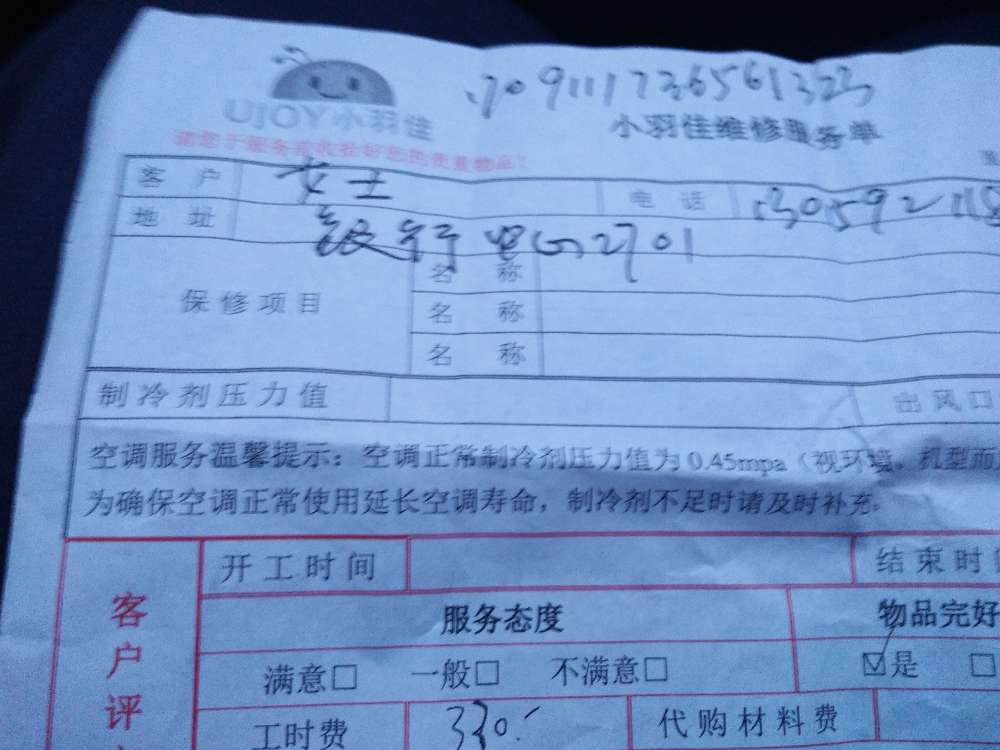 1709111736561323
UJOY小羽佳
小羽佳维修服务单
请您于服务前收拾好您的贵重物品！
客 户 女士 电 话
地 址 2701
保修项目 名 称
名 称
名 称
制冷剂压力值 出风口
空调服务温馨提示：空调正常制冷剂压力值为 0.45mpa（视环境、机型而
为确保空调正常使用延长空调寿命，制冷剂不足时请及时补充。
客户评 开工时间 结束时
服务态度 物品完好
满意□ 一般□ 不满意□ ☑是 □
工时费 330 代购材料费